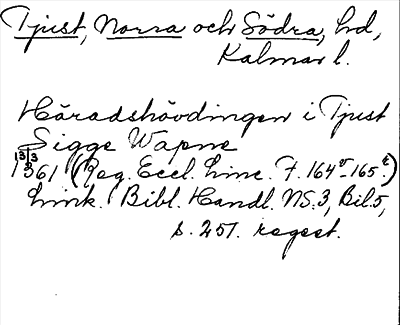 Tjust, Norra och Södra, hd,
Kalmar l.
Häradshövdingen i Tjust
Sigge Wapne
13/3
1361 (Reg. Eccl. Linc. F. 164v-165r)
Link. Bibl. Handl. NS:3, Bil.5,
s. 257. regest.